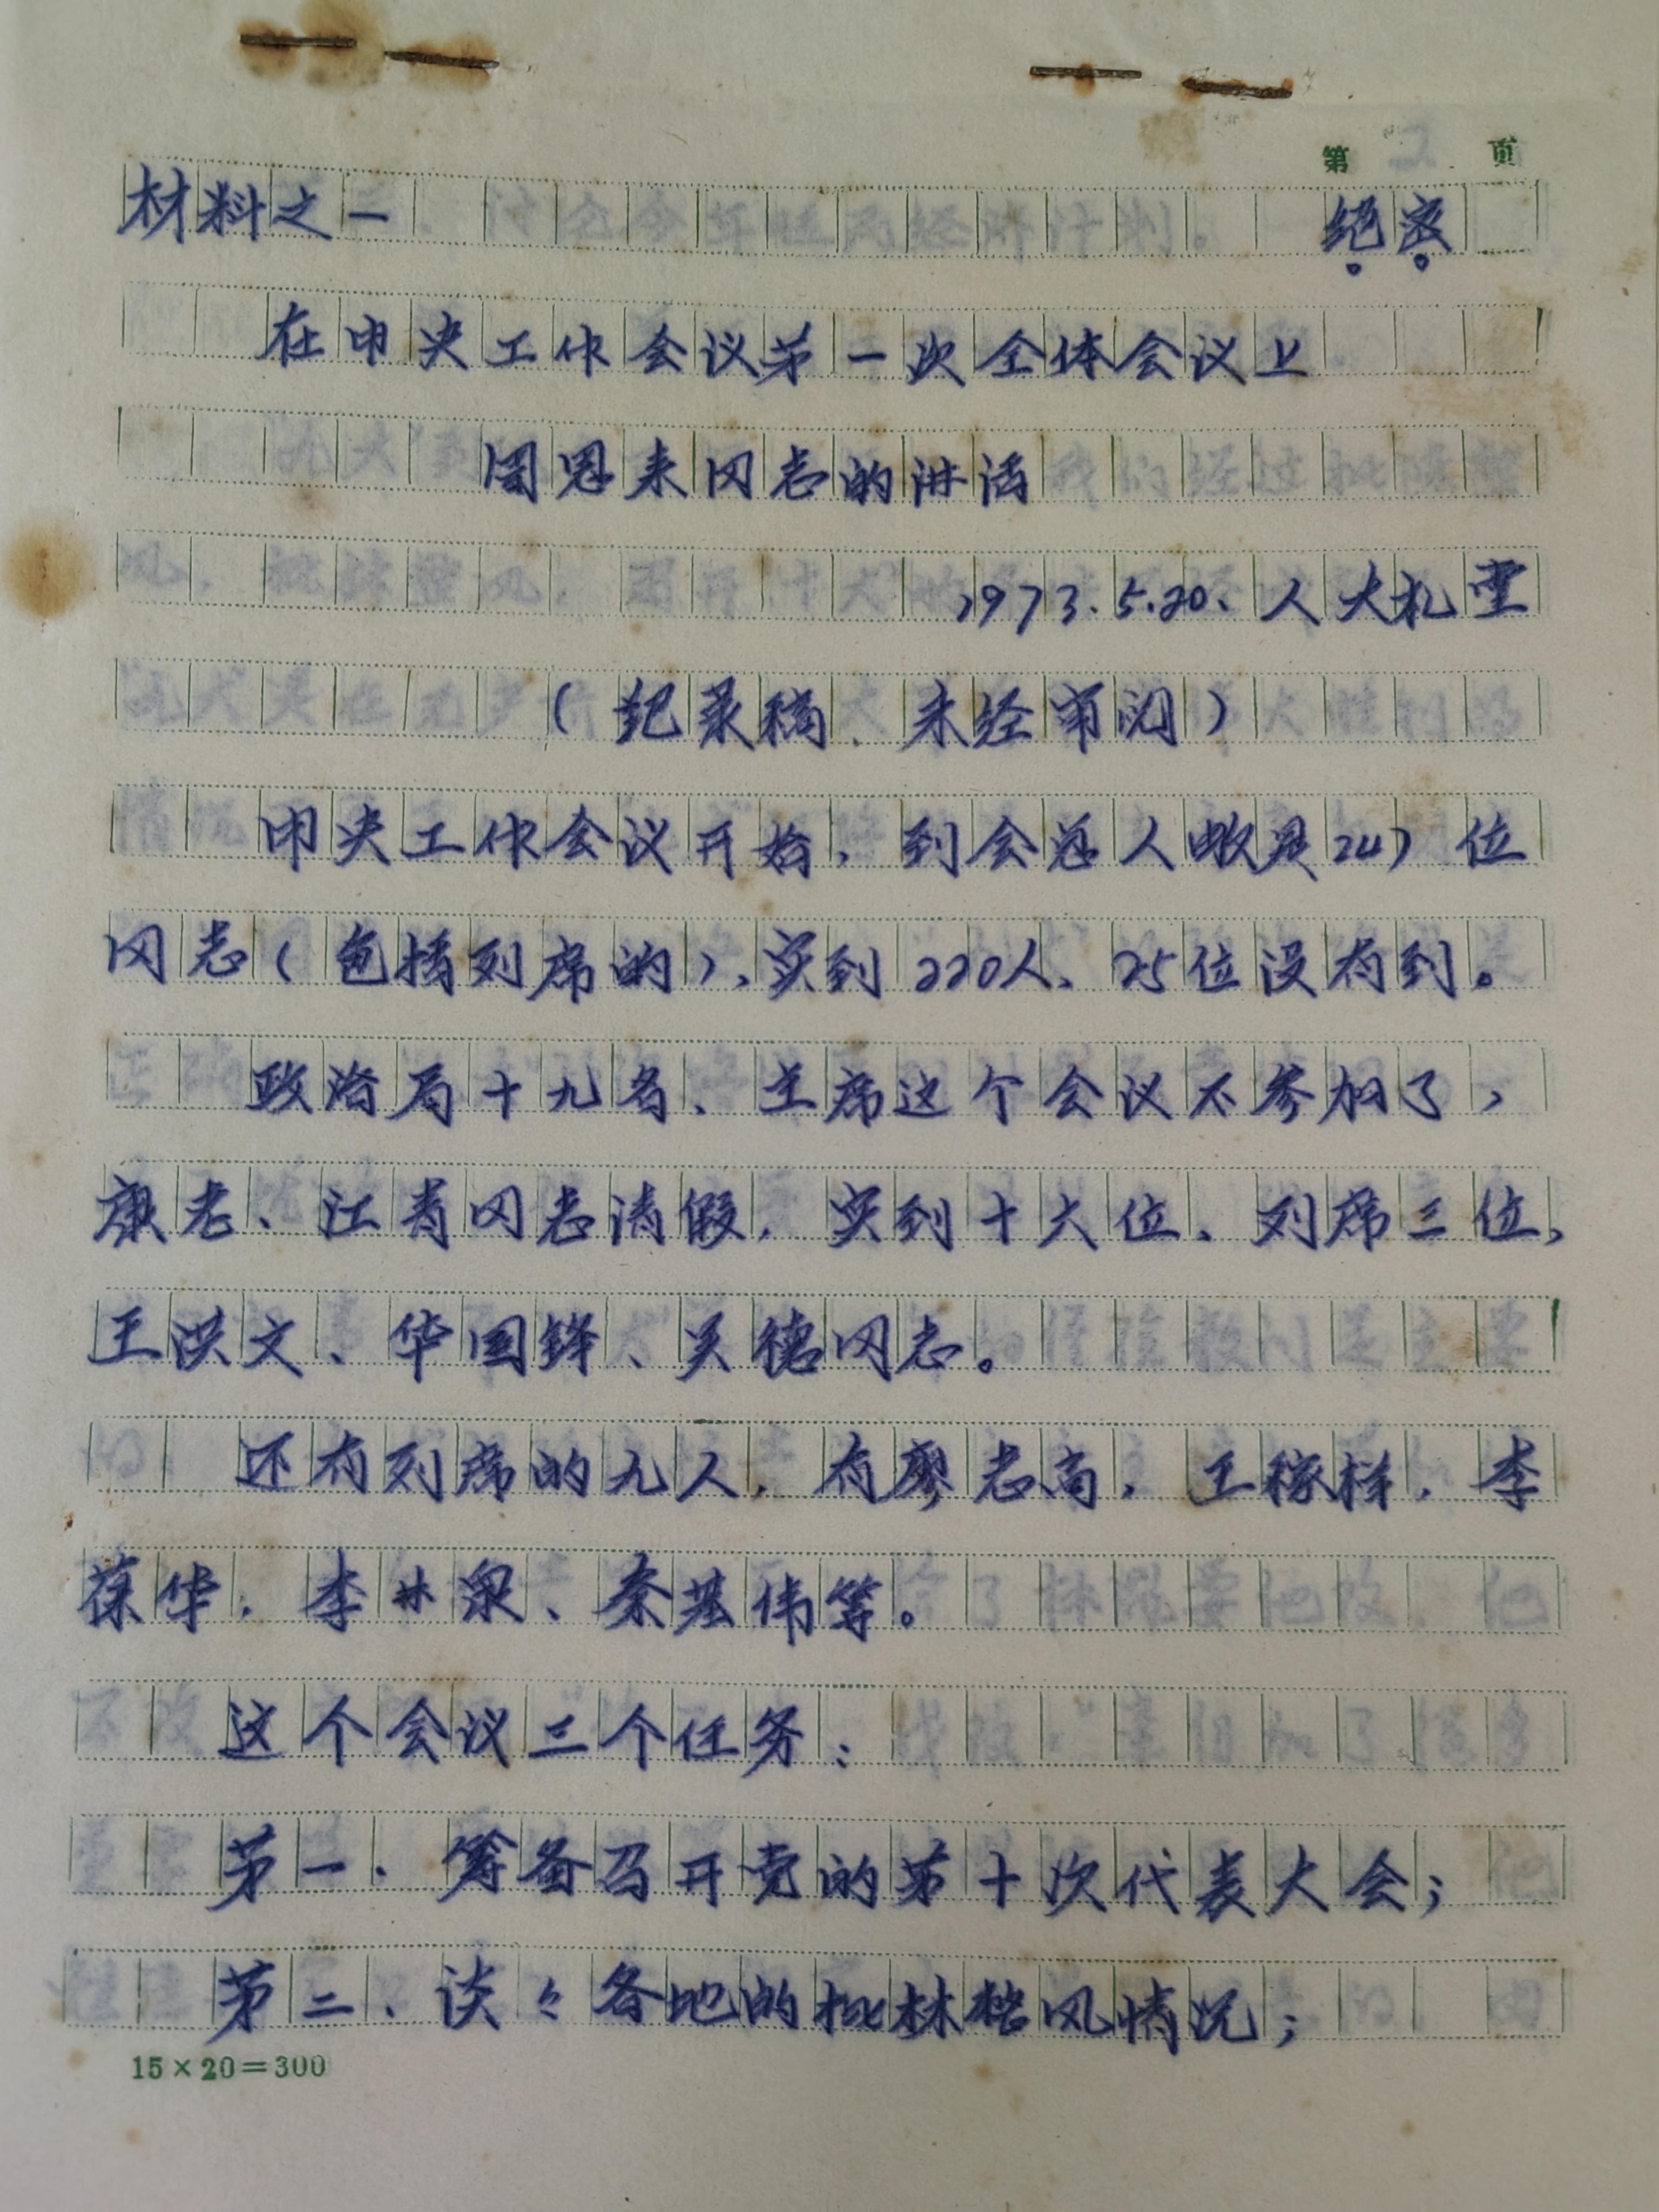 第 页
材料之一 绝密
在中央工作会议第一次全体会议上
周恩来同志的讲话
1973.5.20、人大礼堂
(纪录稿、未经审阅)
中央工作会议开始,到会总人数是247位
同志(包括列席的),实到220人、25位没有到。
政治局十九名、主席这个会议不参加了,
康老、江青同志请假,实到十六位、列席三位,
王洪文、华国锋、吴德同志。
还有列席的九人,有廖志高,王稼祥,李
葆华,李井泉、秦基伟等。
这个会议三个任务:
第一、筹备召开党的第十次代表大会;
第二、谈々各地的批林整风情况;
15×20=300